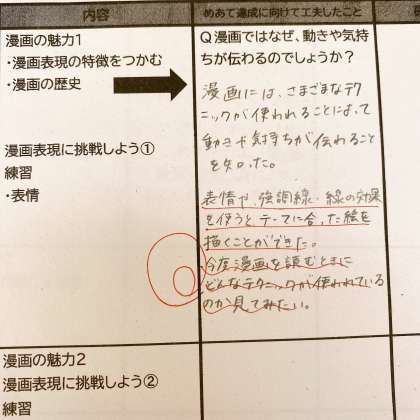 内容
めあて達成に向けて工夫したこと
漫画の魅力1
・漫画表現の特徴をつかむ
・漫画の歴史
漫画表現に挑戦しよう①
練習
・表情
Q漫画ではなぜ、動きや気持
ちが伝わるのでしょうか？
漫画には、さまざまなテク
ニックが使われることによって
動きや気持ちが伝わること
を知った。
表情や、強調線・線の効果
を使うと、テーマに合った絵を
描くことができた。
今度漫画を読むときに
どんなテクニックが使われている
のか見てみたい。
漫画の魅力2
漫画表現に挑戦しよう②
練習